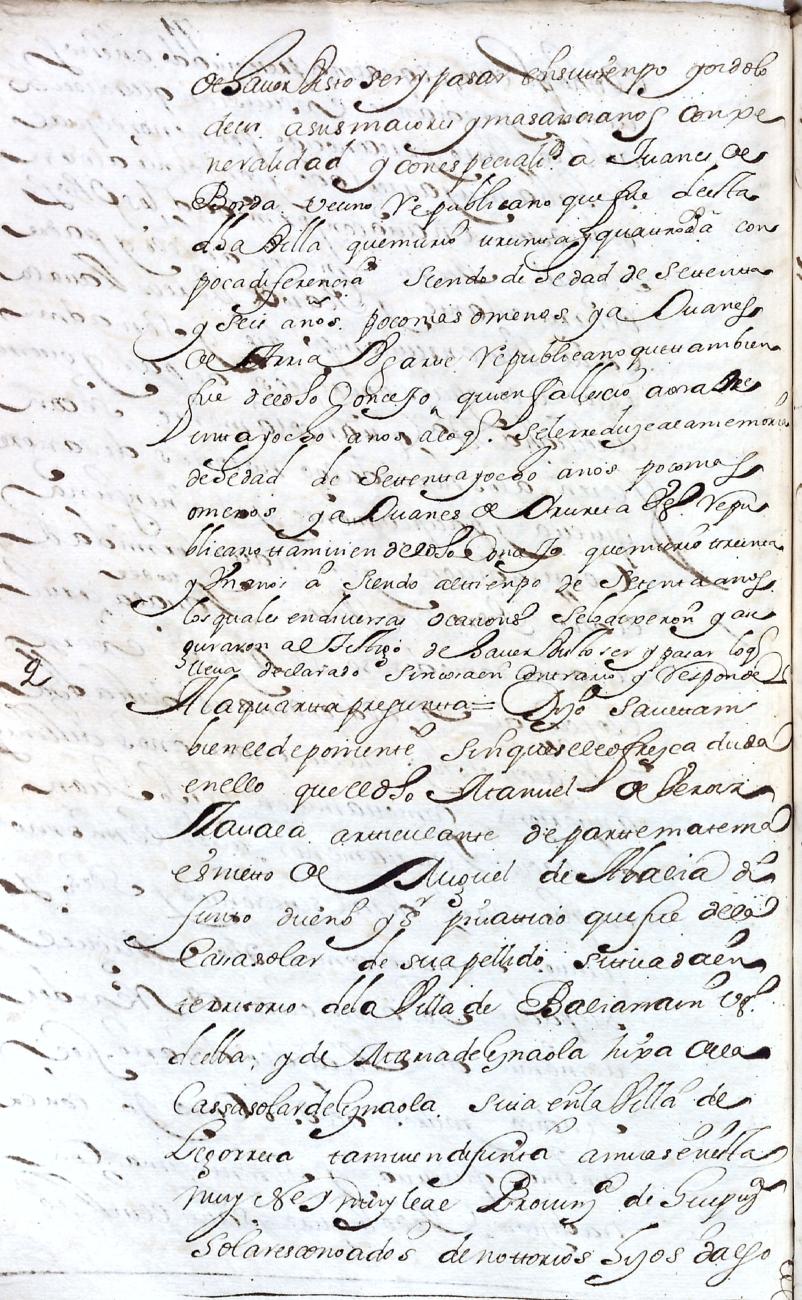 de hauer visto ser y pasar en su tienpo y oidolo
decir a sus maiores y mas ancianos con xe
neralidad y con especialid a Juanes de
Borda vecino Republicano que fue de esta
dha Villa que murio treinta y quatro a con
poca diferencia siendo de hedad de settenta
y seis años poco mas o menos y a Juanes
de Arria Vgarte Republicano que tambien
fue de el dho Conzejo quien fallescio aora tre
inta y ocho anos a lo q. se le rreduze a la memoria
de hedad de settenta y ocho anos poco mas
o menos y a Juanes de Vrreta Republi
blicano ttamvien de el dho Conzejo que murio treinta
y años a siendo al tienpo de Setenta anos
los quales en diuersas ocasiones se lo dixeron y ase
guraron al Testigo de hauer visto ser y pasar lo q
lleua declarado sin cosa en contrario y responde
9 A la quarta pregunta = Dijo saue ttam
bien el deponiente sin que se le ofrezca duda
en ello que el dho Manuel de
Zauala articulante de parte materna
es nieto de Miguel de Abalia di
funto dueño y sr pruatiuo que fue de la
Casa solar de su apellido situada en
territorio de la Villa de Baliarrain
de ella, y de Maria de Ynaola hixa de la
Cassa solar de Ynaola sitta en la Villa de
Legorreta tamuien difunta amuas en esta
muy Ne y muy leal Prouinª de Guipuz
solares conoados de nottorios hijos dalgo